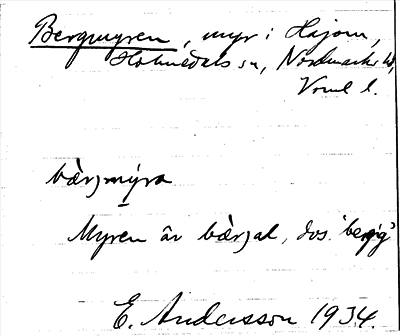 Bergmyren, myr i Hajom,
Holmedals sn, Nordmarks hd,
Vrml l.
bèrjmýra
Myren är bèrjal, dvs. 'bergig'
E. Andersson 1934.